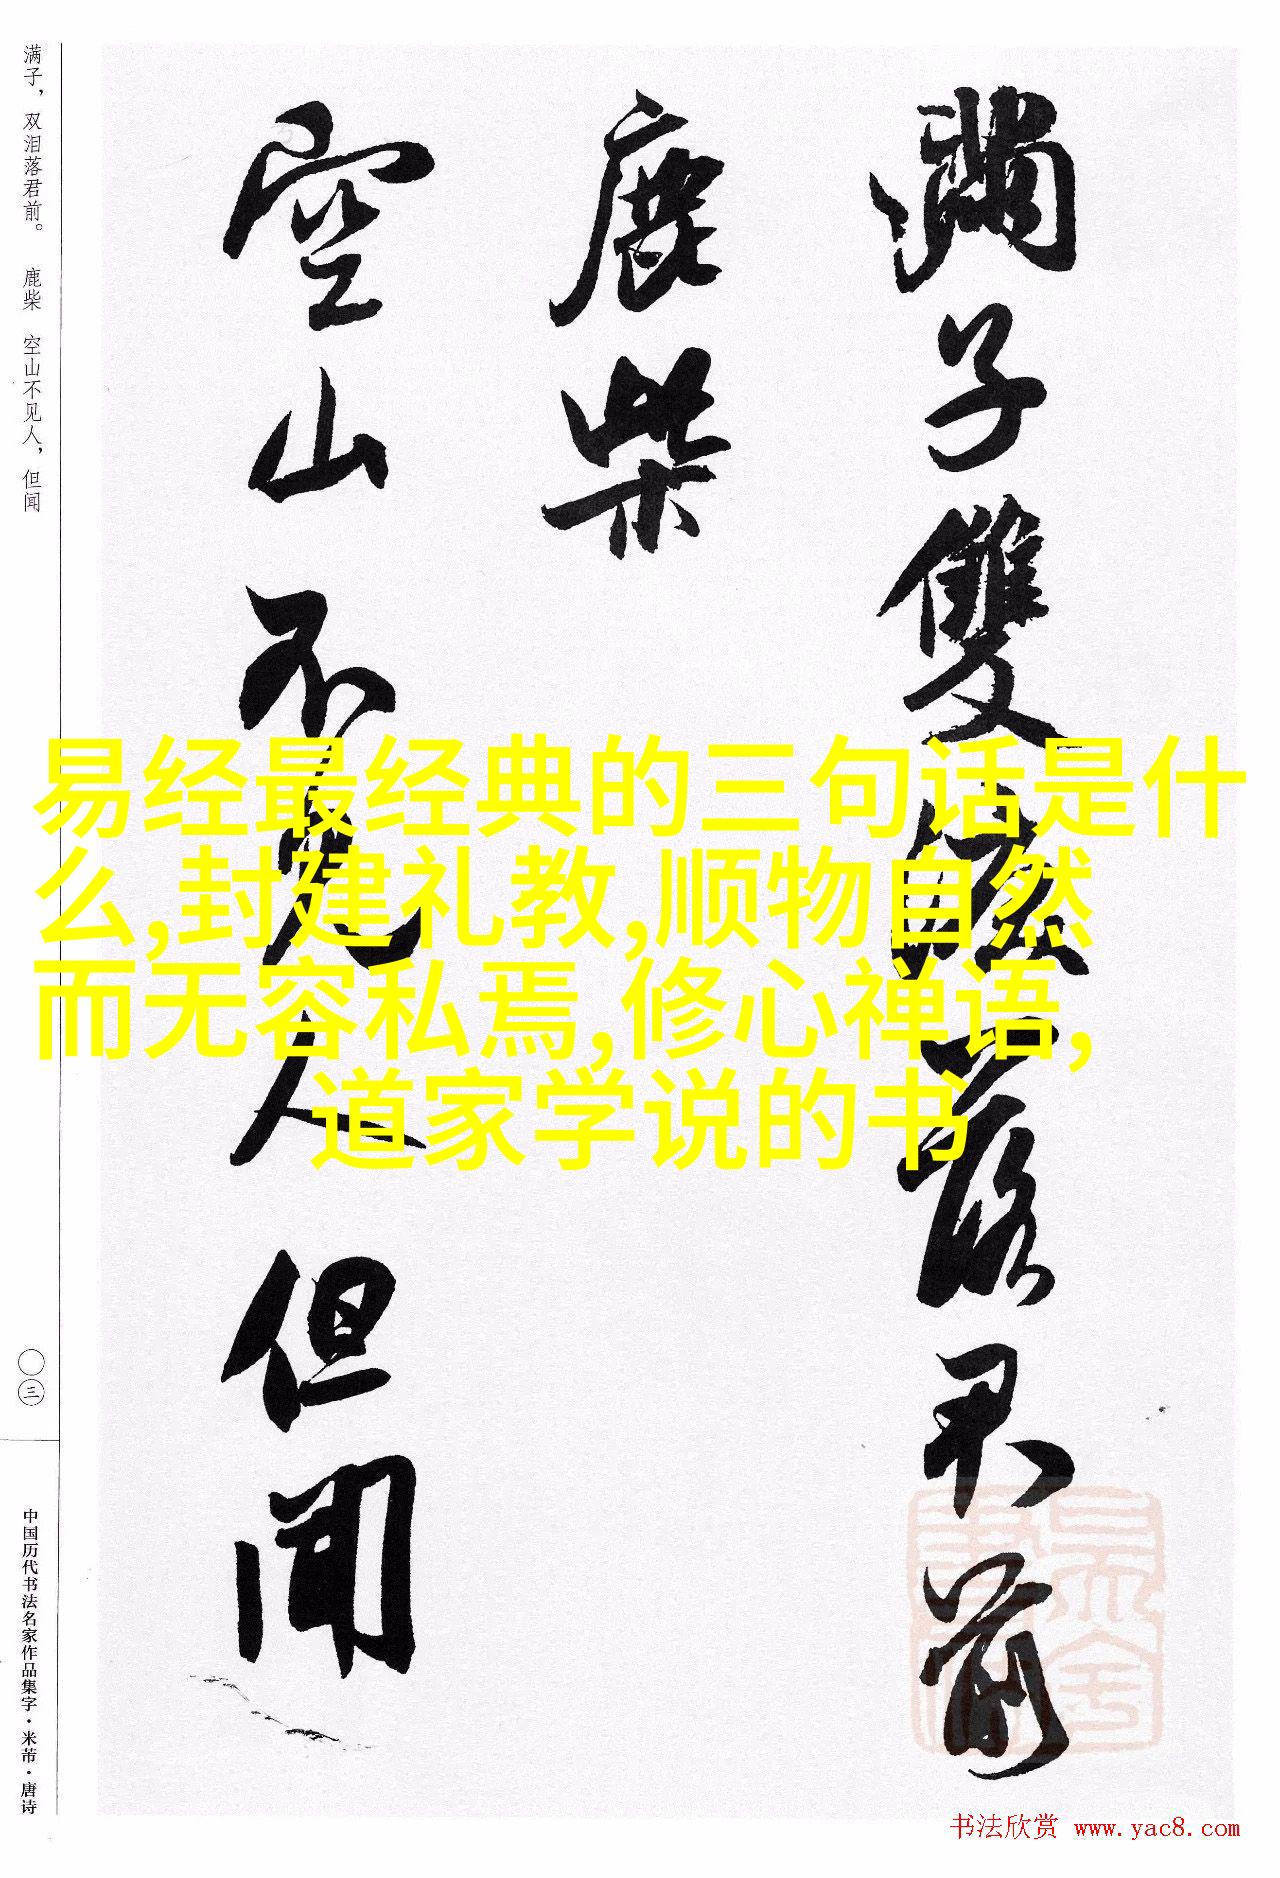 满子，双泪落君前。 鹿柴 空山不见人，但闻
满子雙淚落君前
鹿柴
空山不見人但聞
易经最经典的三句话是什
么,封建礼教,顺物自然
而无容私焉,修心禅语,
道家学说的书
〇三
中国历代书法名家作品集字·米芾·唐诗
书法欣赏 www.yac8.com